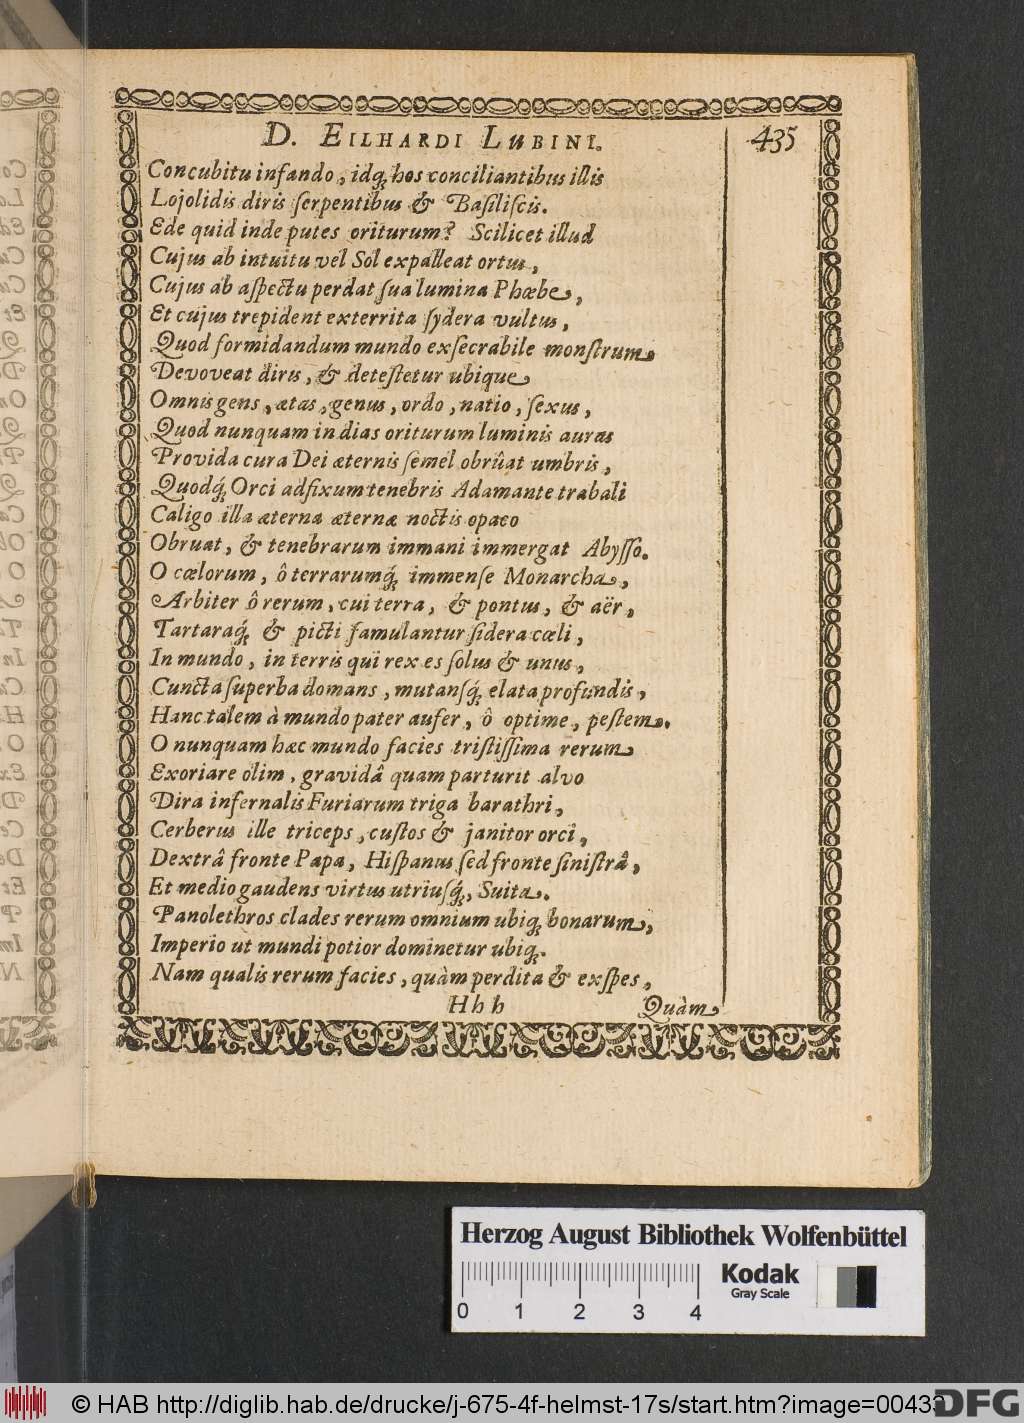 D. EILHARDI LUBINI. 435
Concubitu infando, idq́; hos conciliantibus illis
Lojolidis diris ſerpentibus & Baſiliſcis.
Ede quid inde putes oriturum? Scilicet illud
Cujus ab intuitu vel Sol expalleat ortus,
Cujus ab aſpectu perdat ſua lumina Phœbe,
Et cujus trepident exterrita ſydera vultus,
Quod formidandum mundo exſecrabile monſtrum
Devoveat diris, & deteſtetur ubique
Omnis gens, ætas, genus, ordo, natio, ſexus,
Quod nunquam in dias oriturum luminis auras
Provida cura Dei æternis ſemel obrûat umbris,
Quodq́; Orci adfixum tenebris Adamante trabali
Caligo illa æterna æternæ noctis opaco
Obruat, & tenebrarum immani immergat Abyſſo.
O cœlorum, ô terrarumq́; immenſe Monarcha,
Arbiter ô rerum, cui terra, & pontus, & aër,
Tartaraq́; & picti famulantur ſidera cœli,
In mundo, in terris qui rex es ſolus & unus,
Cuncta ſuperba domans, mutanſq́; elata profundis,
Hanc talem à mundo pater aufer, ô optime, peſtem.
O nunquam hæc mundo facies triſtiſſima rerum
Exoriare olim, gravidâ quam parturit alvo
Dira infernalis Furiarum triga barathri,
Cerberus ille triceps, cuſtos & janitor orci,
Dextrâ fronte Papa, Hiſpanus ſed fronte ſiniſtrâ,
Et medio gaudens virtus utriuſq́;, Suita.
Panolethros clades rerum omnium ubiq; bonarum,
Imperio ut mundi potior dominetur ubiq;.
Nam qualis rerum facies, quàm perdita & exſpes,
Hhh Quàm
Herzog August Bibliothek Wolfenbüttel
0 1 2 3 4
Kodak
Gray Scale
© HAB http://diglib.hab.de/drucke/j-675-4f-helmst-17s/start.htm?image=00433
DFG